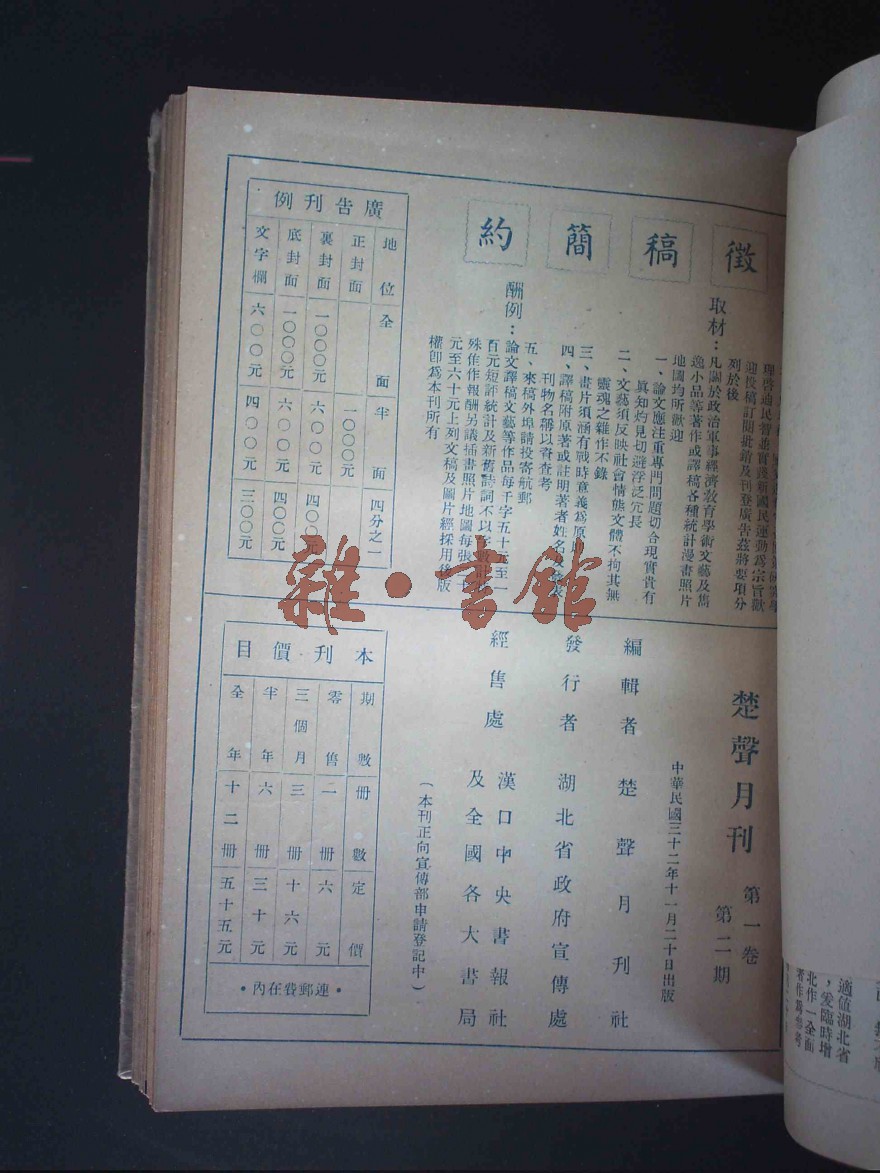 徵稿簡約
理啓迪民智並實踐新國民運動爲宗旨歡
迎投稿訂閱批銷及刊登廣告茲將要項分
列於後
取材：凡關於政治軍事經濟敎育學術文藝及雋
逸小品等著作或譯稿各種統計漫畫照片
地圖均所歡迎
一、論文應注重專門問題切合現實貴有
眞知灼見切避浮泛冗長
二、文藝須反映社會情態文體不拘其無
靈魂之雜作不錄
三、畫片須涵有戰時意義爲原則
四、譯稿附原著或註明著者姓名及
刊物名稱以資查考
五、來稿外埠請投寄航郵
酬例：論文譯稿文藝等作品每千字五十元至一
百元短評統計及新舊詩詞不以字數計
殊佳作報酬另議插畫照片地圖每張
元至六十元上列文稿及圖片經採用後版
權卽爲本刊所有
廣告刊例
地位 全面 半面 四分之一
正封面 一〇〇〇元
裏封面 一〇〇〇元 六〇〇元 四〇〇元
底封面 一〇〇〇元 六〇〇元 四〇〇元
文字欄 六〇〇元 四〇〇元 三〇〇元
雜·書館
楚聲月刊 第一卷
第二期
中華民國三十二年十一月二十日出版
編輯者 楚聲月刊社
發行者 湖北省政府宣傳處
經售處 漢口中央書報社
及全國各大書局
（本刊正向宣傳部申請登記中）
本刊價目
期數 冊數 定價
零售 一冊 六元
三個月 三冊 十六元
半年 六冊 三十元
全年 十二冊 五十五元
·連郵費在內·
適值湖北省
，爰臨時增
北作一全面
著作爲參考